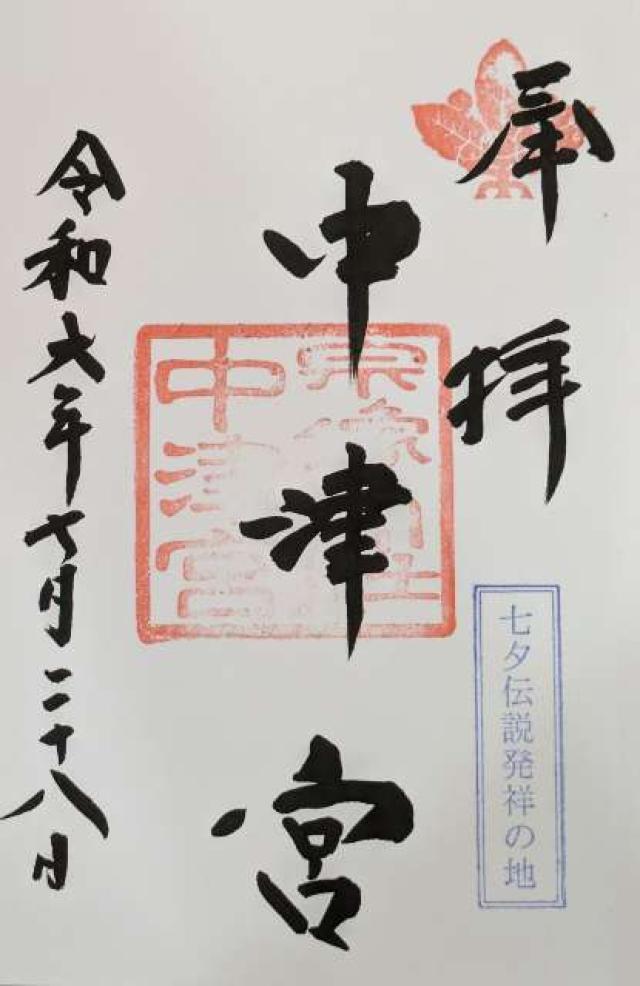 奉拝
七夕伝説発祥の地
中津宮
宗像大社
中津宮
令和六年七月二十八日